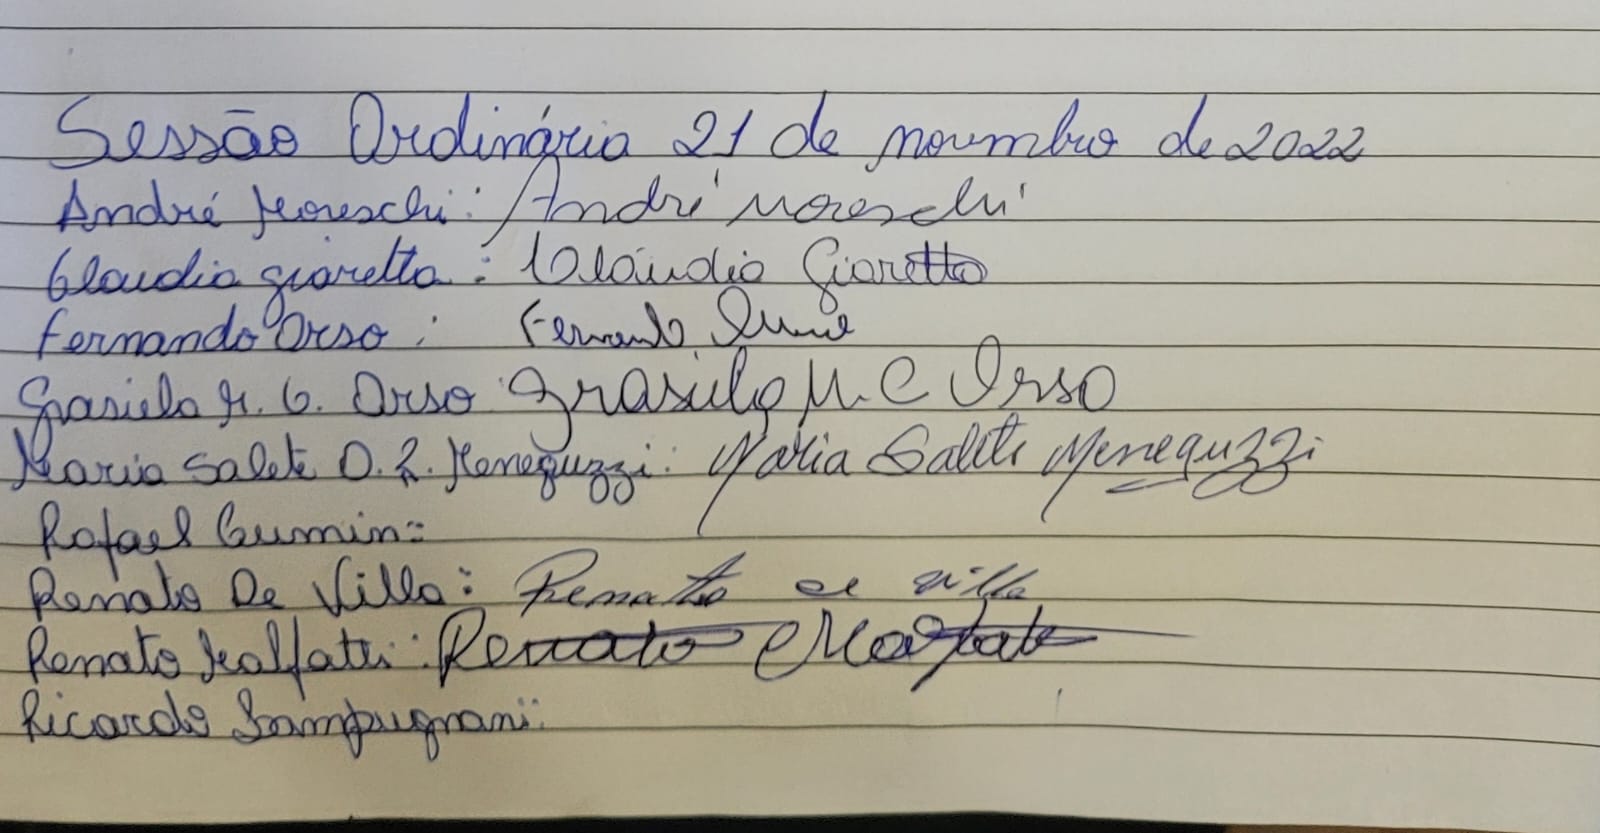 Sessão Ordinária 21 de novembro de 2022
André Moreschi: André Moreschi
Claudia Giaretta: Claudia Giaretta
Fernando Orso: Fernando
Grasiela M. C. Orso: Grasiela M. C Orso
Maria Salete D. R. Meneguzzi: Maria Salete Meneguzzi
Rafael Cumin:
Renato De Villa: Renato de villa
Renato Malfatti: Renato Malfatti
Ricardo Sampugnani: